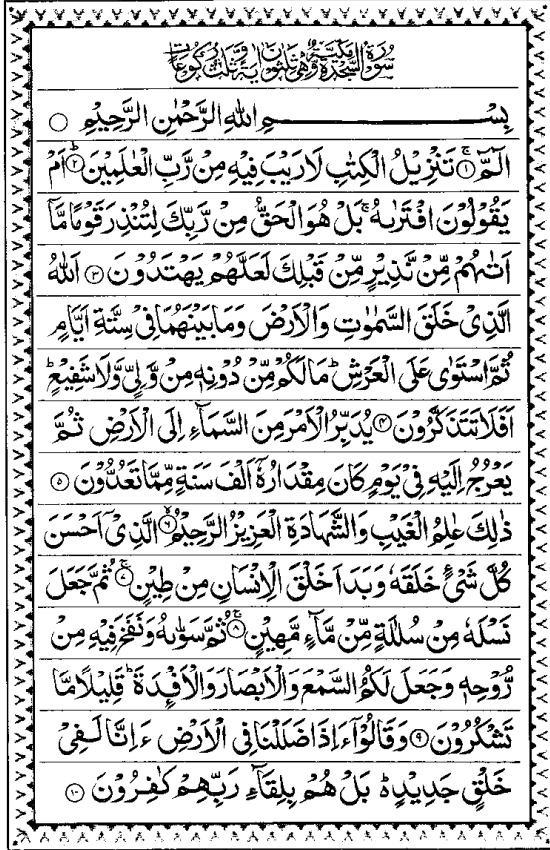 سُوْرَةُ السَّجْدَةِ مَكِّيَّةٌ وَّهِيَ ثَلٰثُوْنَ اٰيَةً وَّثَلٰثُ رُكُوْعَاتٍ
بِسْمِ اللهِ الرَّحْمٰنِ الرَّحِيْمِ ○
الٓمّٓ ۚ﴿۱﴾ تَنْزِيْلُ الْكِتٰبِ لَا رَيْبَ فِيْهِ مِنْ رَّبِّ الْعٰلَمِيْنَ ؕ﴿۲﴾ اَمْ
يَقُوْلُوْنَ افْتَرٰىهُ ۚ بَلْ هُوَ الْحَقُّ مِنْ رَّبِّكَ لِتُنْذِرَ قَوْمًا مَّاۤ
اَتٰىهُمْ مِّنْ نَّذِيْرٍ مِّنْ قَبْلِكَ لَعَلَّهُمْ يَهْتَدُوْنَ ﴿۳﴾ اَللهُ
الَّذِيْ خَلَقَ السَّمٰوٰتِ وَالْاَرْضَ وَمَا بَيْنَهُمَا فِيْ سِتَّةِ اَيَّامٍ
ثُمَّ اسْتَوٰى عَلَى الْعَرْشِ ؕ مَا لَكُمْ مِّنْ دُوْنِهٖ مِنْ وَّلِيٍّ وَّلَا شَفِيْعٍ ؕ
اَفَلَا تَتَذَكَّرُوْنَ ﴿۴﴾ يُدَبِّرُ الْاَمْرَ مِنَ السَّمَآءِ اِلَى الْاَرْضِ ثُمَّ
يَعْرُجُ اِلَيْهِ فِيْ يَوْمٍ كَانَ مِقْدَارُهٗۤ اَلْفَ سَنَةٍ مِّمَّا تَعُدُّوْنَ ﴿۵﴾
ذٰلِكَ عٰلِمُ الْغَيْبِ وَالشَّهَادَةِ الْعَزِيْزُ الرَّحِيْمُ ۙ﴿۶﴾ الَّذِيْۤ اَحْسَنَ
كُلَّ شَيْءٍ خَلَقَهٗ وَبَدَاَ خَلْقَ الْاِنْسَانِ مِنْ طِيْنٍ ۚ﴿۷﴾ ثُمَّ جَعَلَ
نَسْلَهٗ مِنْ سُلٰلَةٍ مِّنْ مَّآءٍ مَّهِيْنٍ ۚ﴿۸﴾ ثُمَّ سَوّٰىهُ وَنَفَخَ فِيْهِ مِنْ
رُّوْحِهٖ وَجَعَلَ لَكُمُ السَّمْعَ وَالْاَبْصَارَ وَالْاَفْـِٕدَةَ ؕ قَلِيْلًا مَّا
تَشْكُرُوْنَ ﴿۹﴾ وَقَالُوْۤا ءَاِذَا ضَلَلْنَا فِي الْاَرْضِ ءَاِنَّا لَفِيْ
خَلْقٍ جَدِيْدٍ ۬ؕ بَلْ هُمْ بِلِقَآءِ رَبِّهِمْ كٰفِرُوْنَ ﴿۱۰﴾